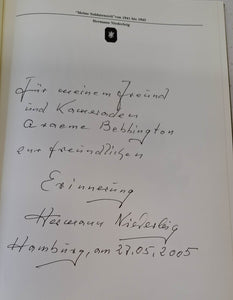 "Meine Soldatenzeit" von 1941 bis 1945
Hermann Niederleig
Für meinem Freund
und Kameraden
Graeme Bebbington
zur freundlichen
Erinnerung
Hermann Niederleig
Hamburg, am 27.05.2005